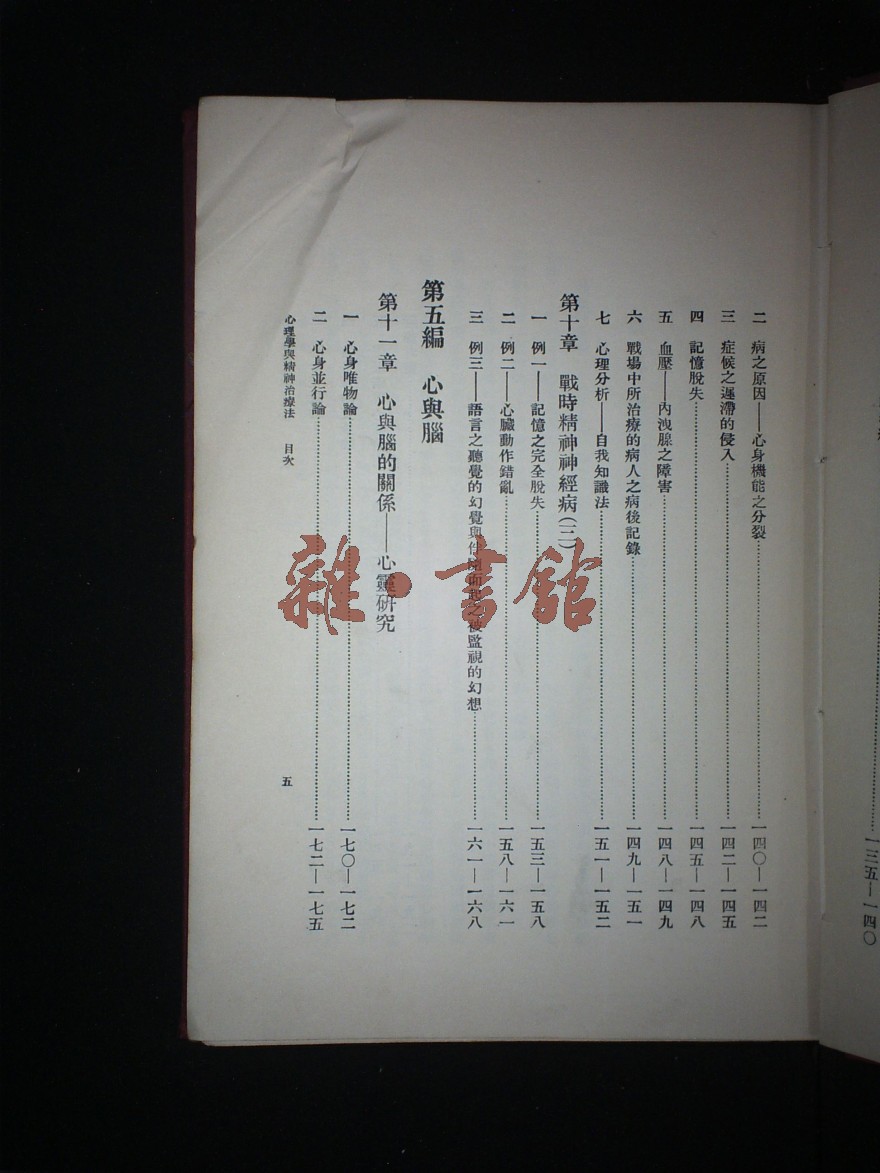 二 病之原因——心身機能之分裂……一四〇—一四二
三 症候之遲滯的侵入……一四二—一四五
四 記憶脫失……一四五—一四八
五 血壓——內洩腺之障害……一四八—一四九
六 戰場中所治療的病人之病後記錄……一四九—一五一
七 心理分析——自我知識法……一五一—一五二
第十章 戰時精神神經病(二)
一 例一——記憶之完全脫失……一五三—一五八
二 例二——心臟動作錯亂……一五八—一六一
三 例三——語言之聽覺的幻覺與 被監視的幻想……一六一—一六八
第五編 心與腦
第十一章 心與腦的關係——心靈研究
一 心身唯物論……一七〇—一七二
二 心身並行論……一七二—一七五
心理學與精神治療法 目次 五
一三五—一四〇
雜·書館